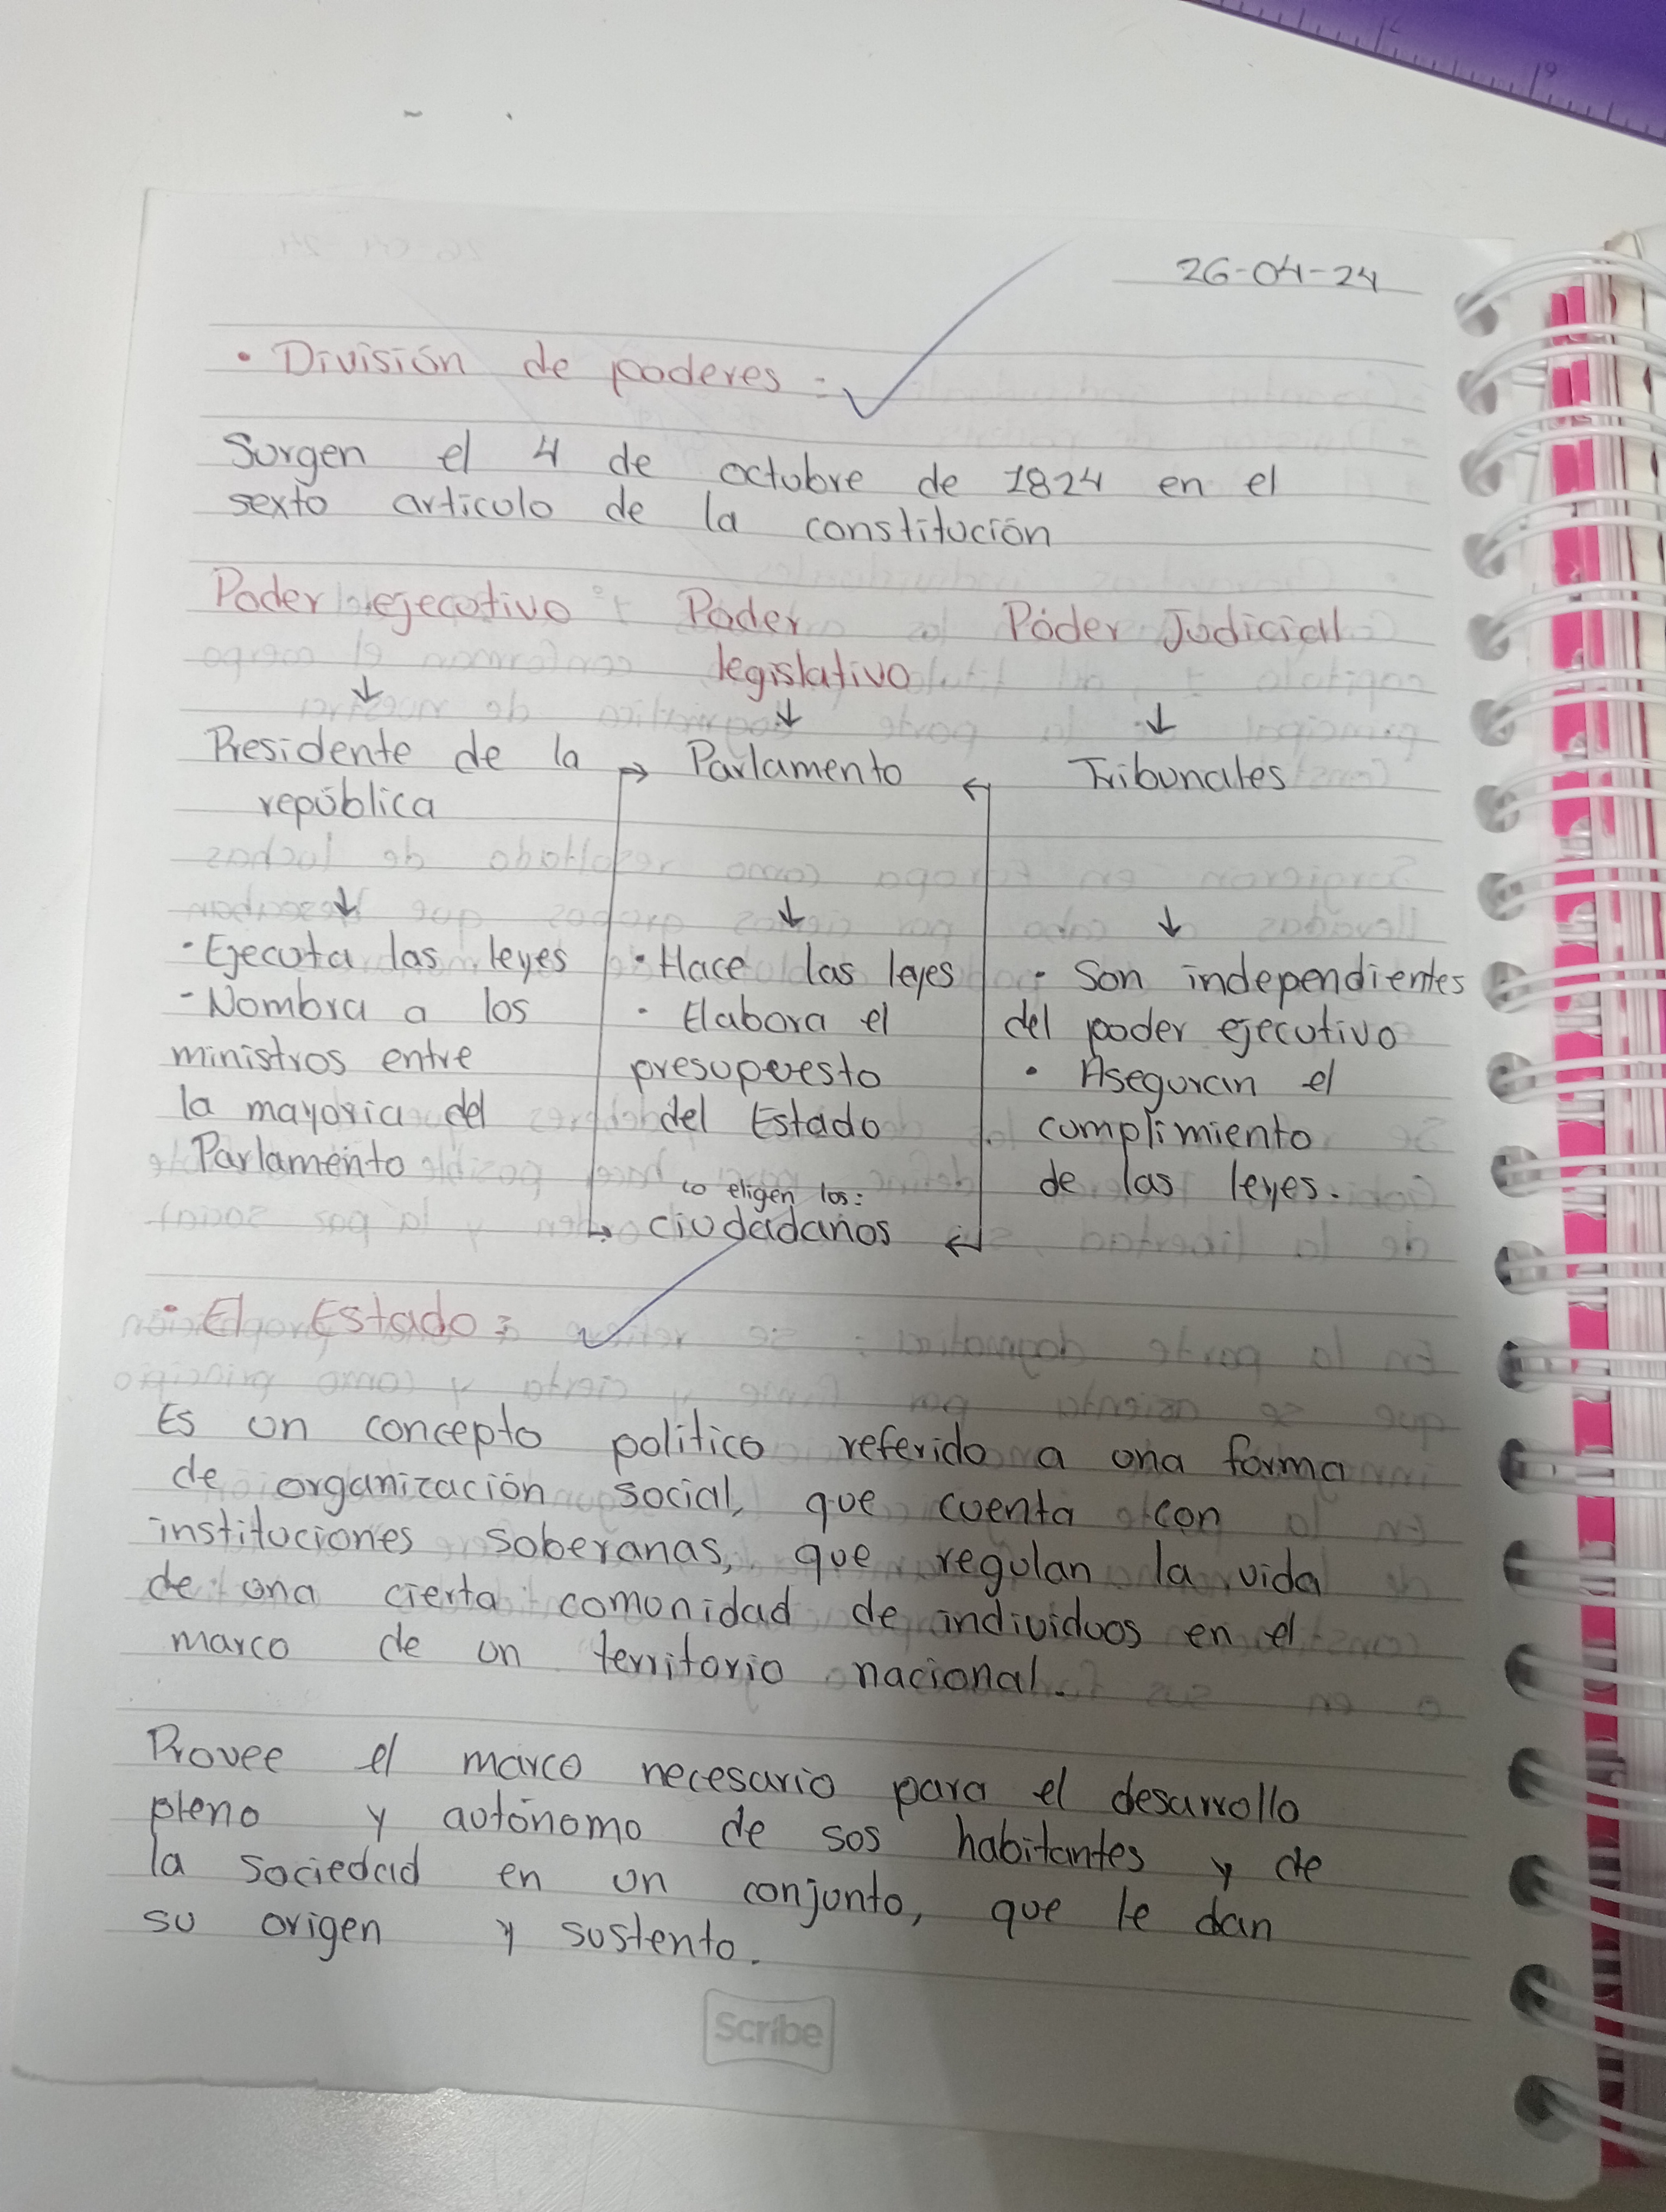 26-04-24
• División de poderes:
Surgen el 4 de octubre de 1824 en el
sexto articulo de la constitución
Poder ejecutivo
Poder
legislativo
Poder Judicial
↓ ↓ ↓
Presidente de la
república
→ Parlamento ←
Tribunales
↓ ↓ ↓
• Ejecuta las leyes
- Nombra a los
ministros entre
la mayoria del
Parlamento
• Hace las leyes
• Elabora el
presupuesto
del Estado
lo eligen los:
→ ciudadanos ←
• Son independientes
del poder ejecutivo
• Aseguran el
cumplimiento
de las leyes.
• El Estado:
Es un concepto politico referido a una forma
de organización social, que cuenta con
instituciones soberanas, que regulan la vida
de una cierta comunidad de individuos en el
marco de un territorio nacional.
Provee el marco necesario para el desarrollo
pleno y autónomo de sus habitantes y de
la sociedad en un conjunto, que le dan
su origen y sustento.
Scribe